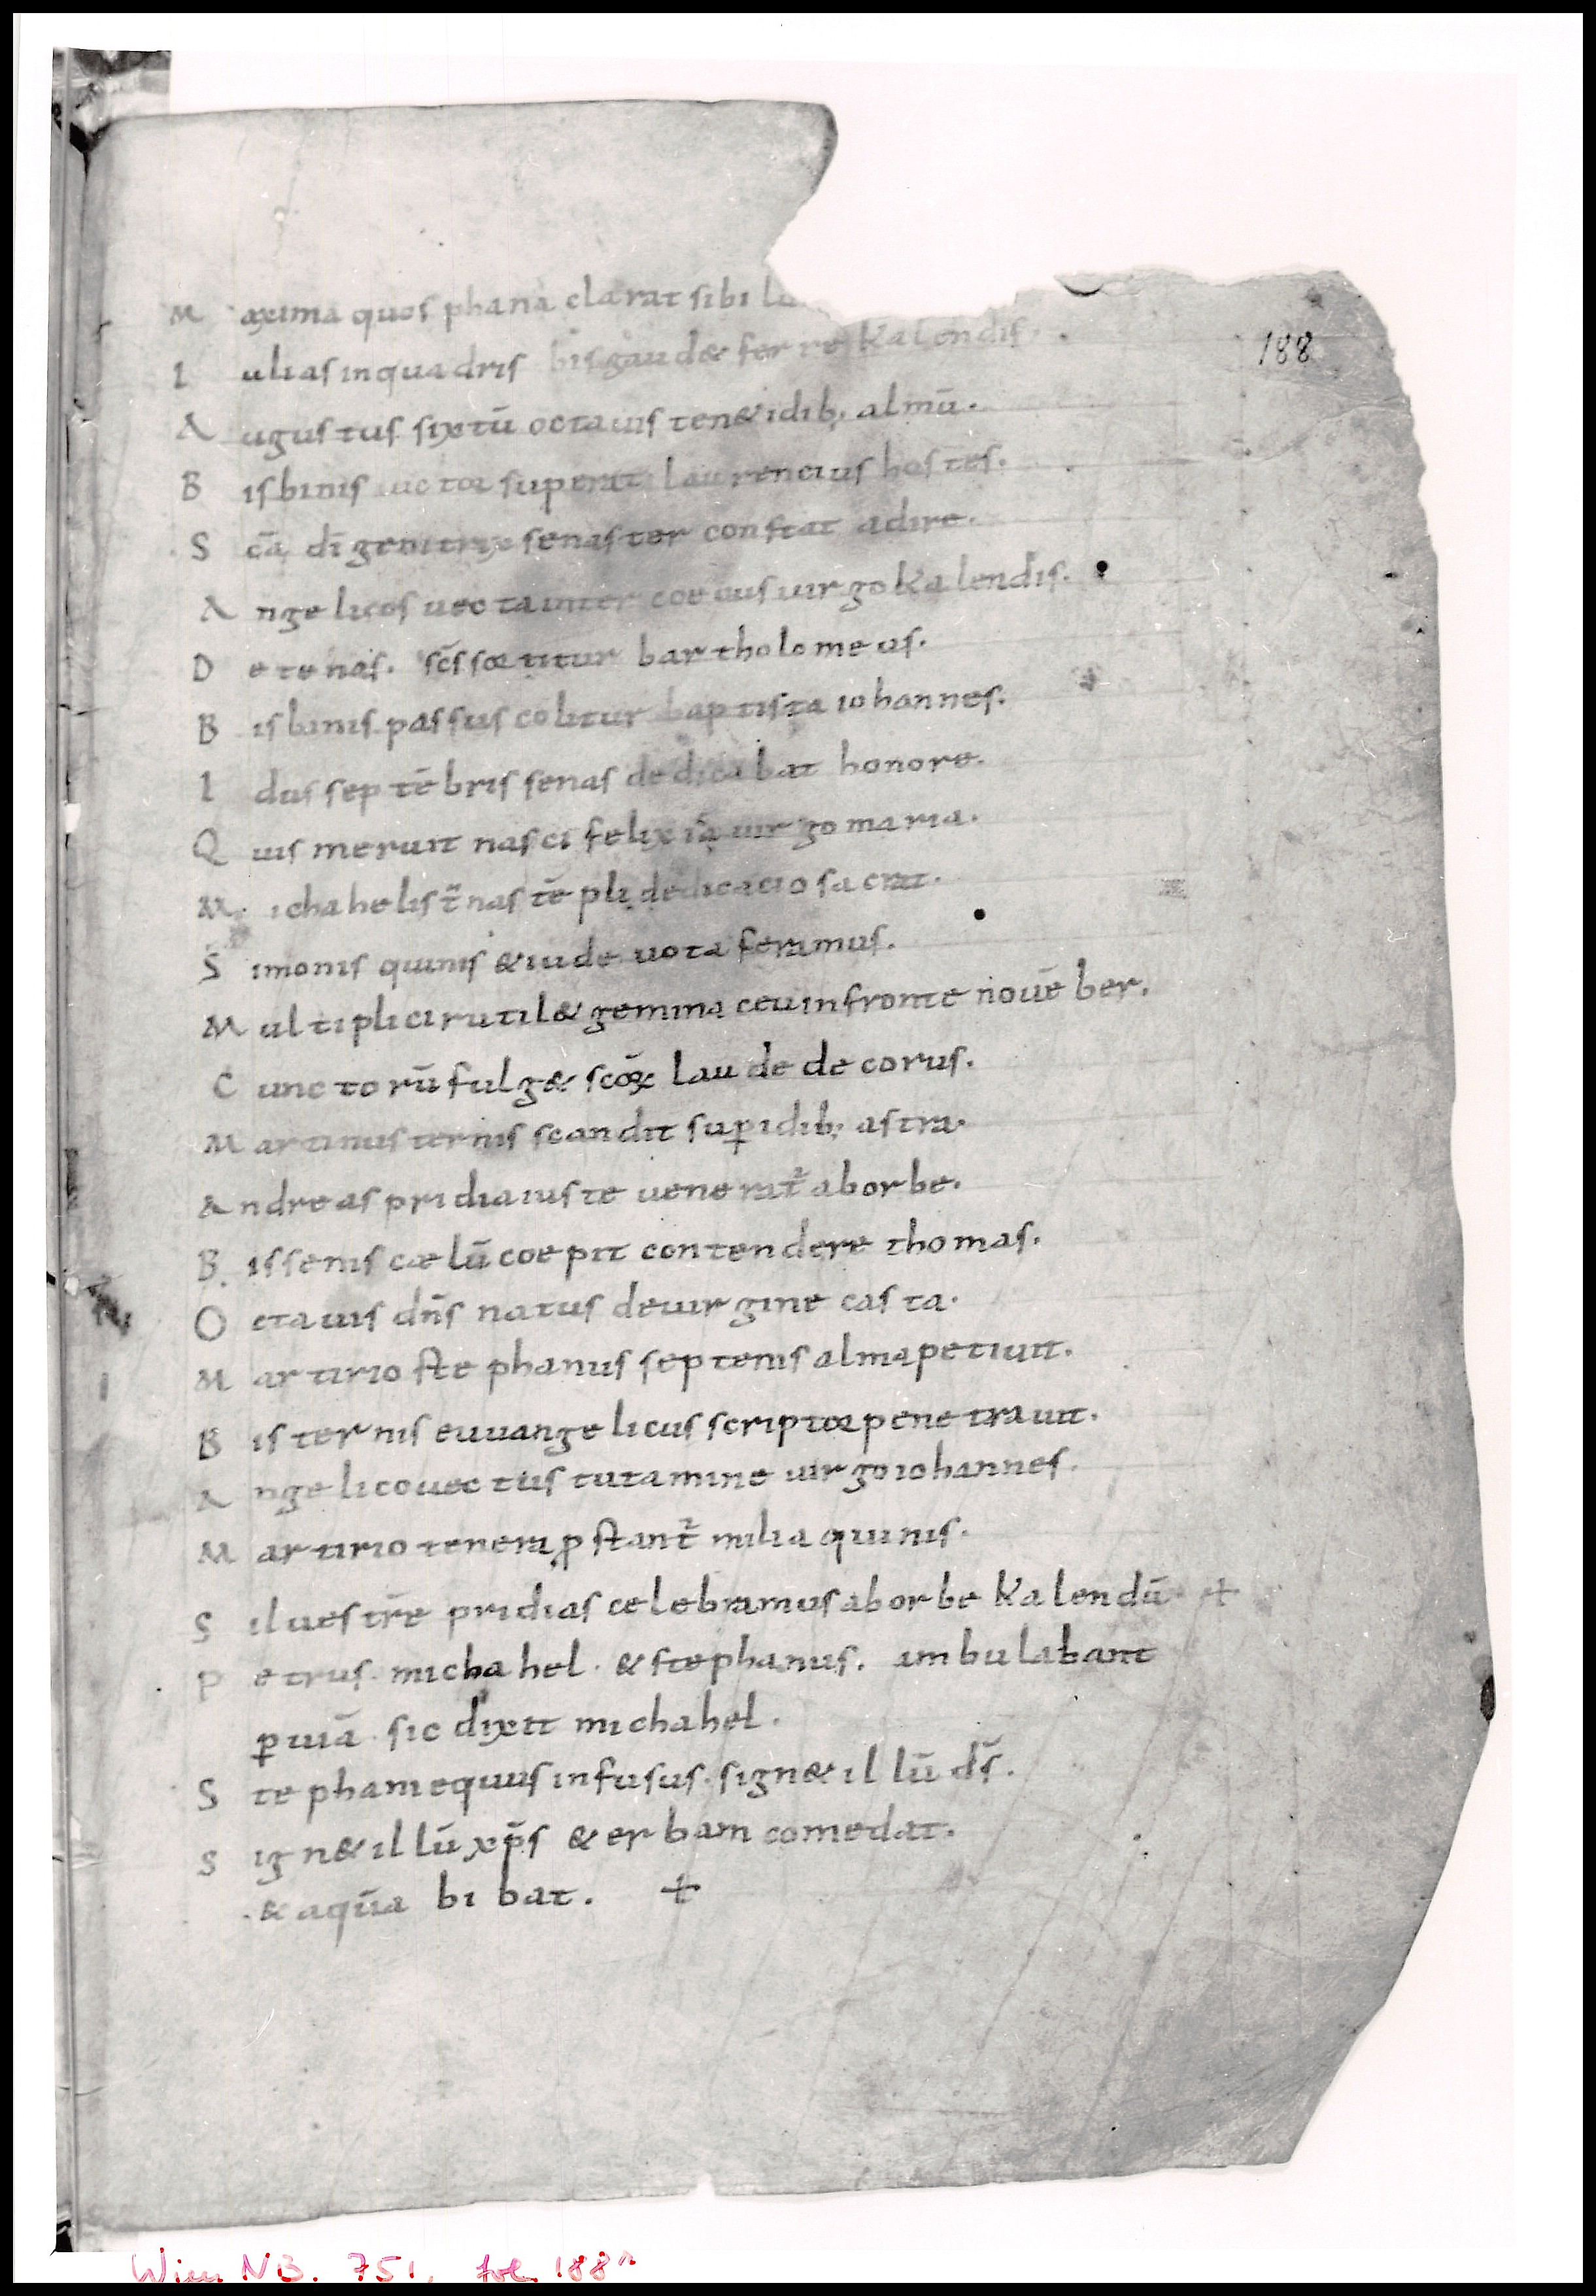 M axima quos phana clarat sibi lu
188
I ulias in quadris bis gaud& ferre kalendis.
A ugustus sixtū octauis ten& idib; almū.
B is binis uictor superat laurencius hostes.
S cā dī genitrix senas ter constat adire.
A ngelicos uecta inter coetus uirgo kalendis.
D etenas. scs sortitur bartholomeus.
B is binis passus colitur baptista iohannes.
I dus septēbris senas dedicabat honore.
Q uis meruit nasci felix iā uirgo maria.
M ichahelis t̄nas tēpli dedicacio sacrat.
S imonis quinis & iude uota feramus.
M ultiplici rutil& gemma ceu in fronte nouēber.
C unctorū fulg& scōꝝ laude decorus.
M artinus ternis scandit suꝑ idib; astra.
A ndreas pridia iuste ueneratᷣ ab orbe.
B is senis cælū coepit contendere thomas.
O ctauis dn̄s natus de uirgine casta.
M artirio stephanus septenis alma petiuit.
B is ternis euuangelicus scriptor penetrauit.
A ngelico uectus tutamine uirgo iohannes.
M artirio tenera ꝓstantᷣ milia quinis.
S iluestrē pridias celebramus ab orbe kalendū +
P etrus. michahel. & stephanus. ambulabant
ꝑ uiā. sic dixit michahel.
S tephani equus infusus. sign& illū ds̄.
S ign& illū xp̄s & erbam comedat.
& aquā bibat. +
Wien NB. 751, fol. 188r